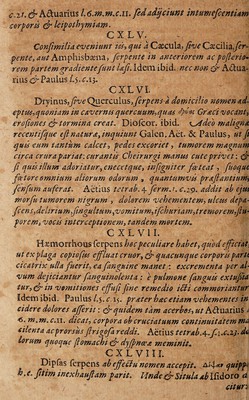 c.21. & Actuarius l.6.m.m.c.11. sed adijciunt intumescentiam
corporis & leipothymiam.
CXLV.
Consimilia eveniunt iis, qui à Cæcula, sive Cæcilia, ser-
pente, aut Amphisbæna, serpente in anteriorem ac posterio-
rem partem gradiente sunt læsi. Idem ibid. nec non & Actua-
rius & Paulus l.5.c.13.
CXLVI.
Dryinus, sive Querculus, serpens à domicilio nomen ad-
eptus, quoniam in cavernis quercuum, quas Græci vocant,
erosione & tormina creat. Dioscor. ibid. Adeo maligna
recentisque est natura, inquiunt Galen. Act. & Paulus, ut si
quis eum tantum calcet, pedes excoriet, tumorem magnum
circa crura pariat: curantis Cheirurgi manus cute privet: &
si quis illum adoriatur, enectque, assligniter fœteat, suoque
fœtore omnium aliorum odorum, quantumvis præstantium,
sensum auferat. Aetius tetrab. 4. serm. 1. c. 29. addit ab ejus
morsu tumorem nigrum, dolorem vehementem, ulcus depa-
scens, delirium, singultum, vomitum, ischuriam, tremorem, stu-
porem, vocis interceptionem, tandem mortem.
CXLVII.
Hæmorrhous serpens hoc peculiare habet, quod efficiat
ut ex plaga copiosus effluat cruor, & quacunque corporis parte
cicatrix ulla fuerit, ea sanguine manet: excrementa per al-
vum dejectantur sanguinolenta: è pulmone sanguis extussia-
tur, & in vomitiones effusi sine remedio icti commoriantur
Idem ibid. Paulus l.5.c.15. præter hæc etiam vehementes in-
cidere dolores asserit: & quidem tam acerbos, ut Actuarius
6. m.m.c. 11. dicat, corpora ob cruciatum continuitatem ma-
cilenta ac prorsus strigosa reddi. Aetius tetrab. 4. s.1.c.23. do-
lorum quoque stomachi & dyspnææ meminit.
CXLVIII.
Dipsas serpens ab effectu nomen accepit. quippe
h.e. sitim inexhaustam parit. Unde & Situla ab Isidoro a
citur